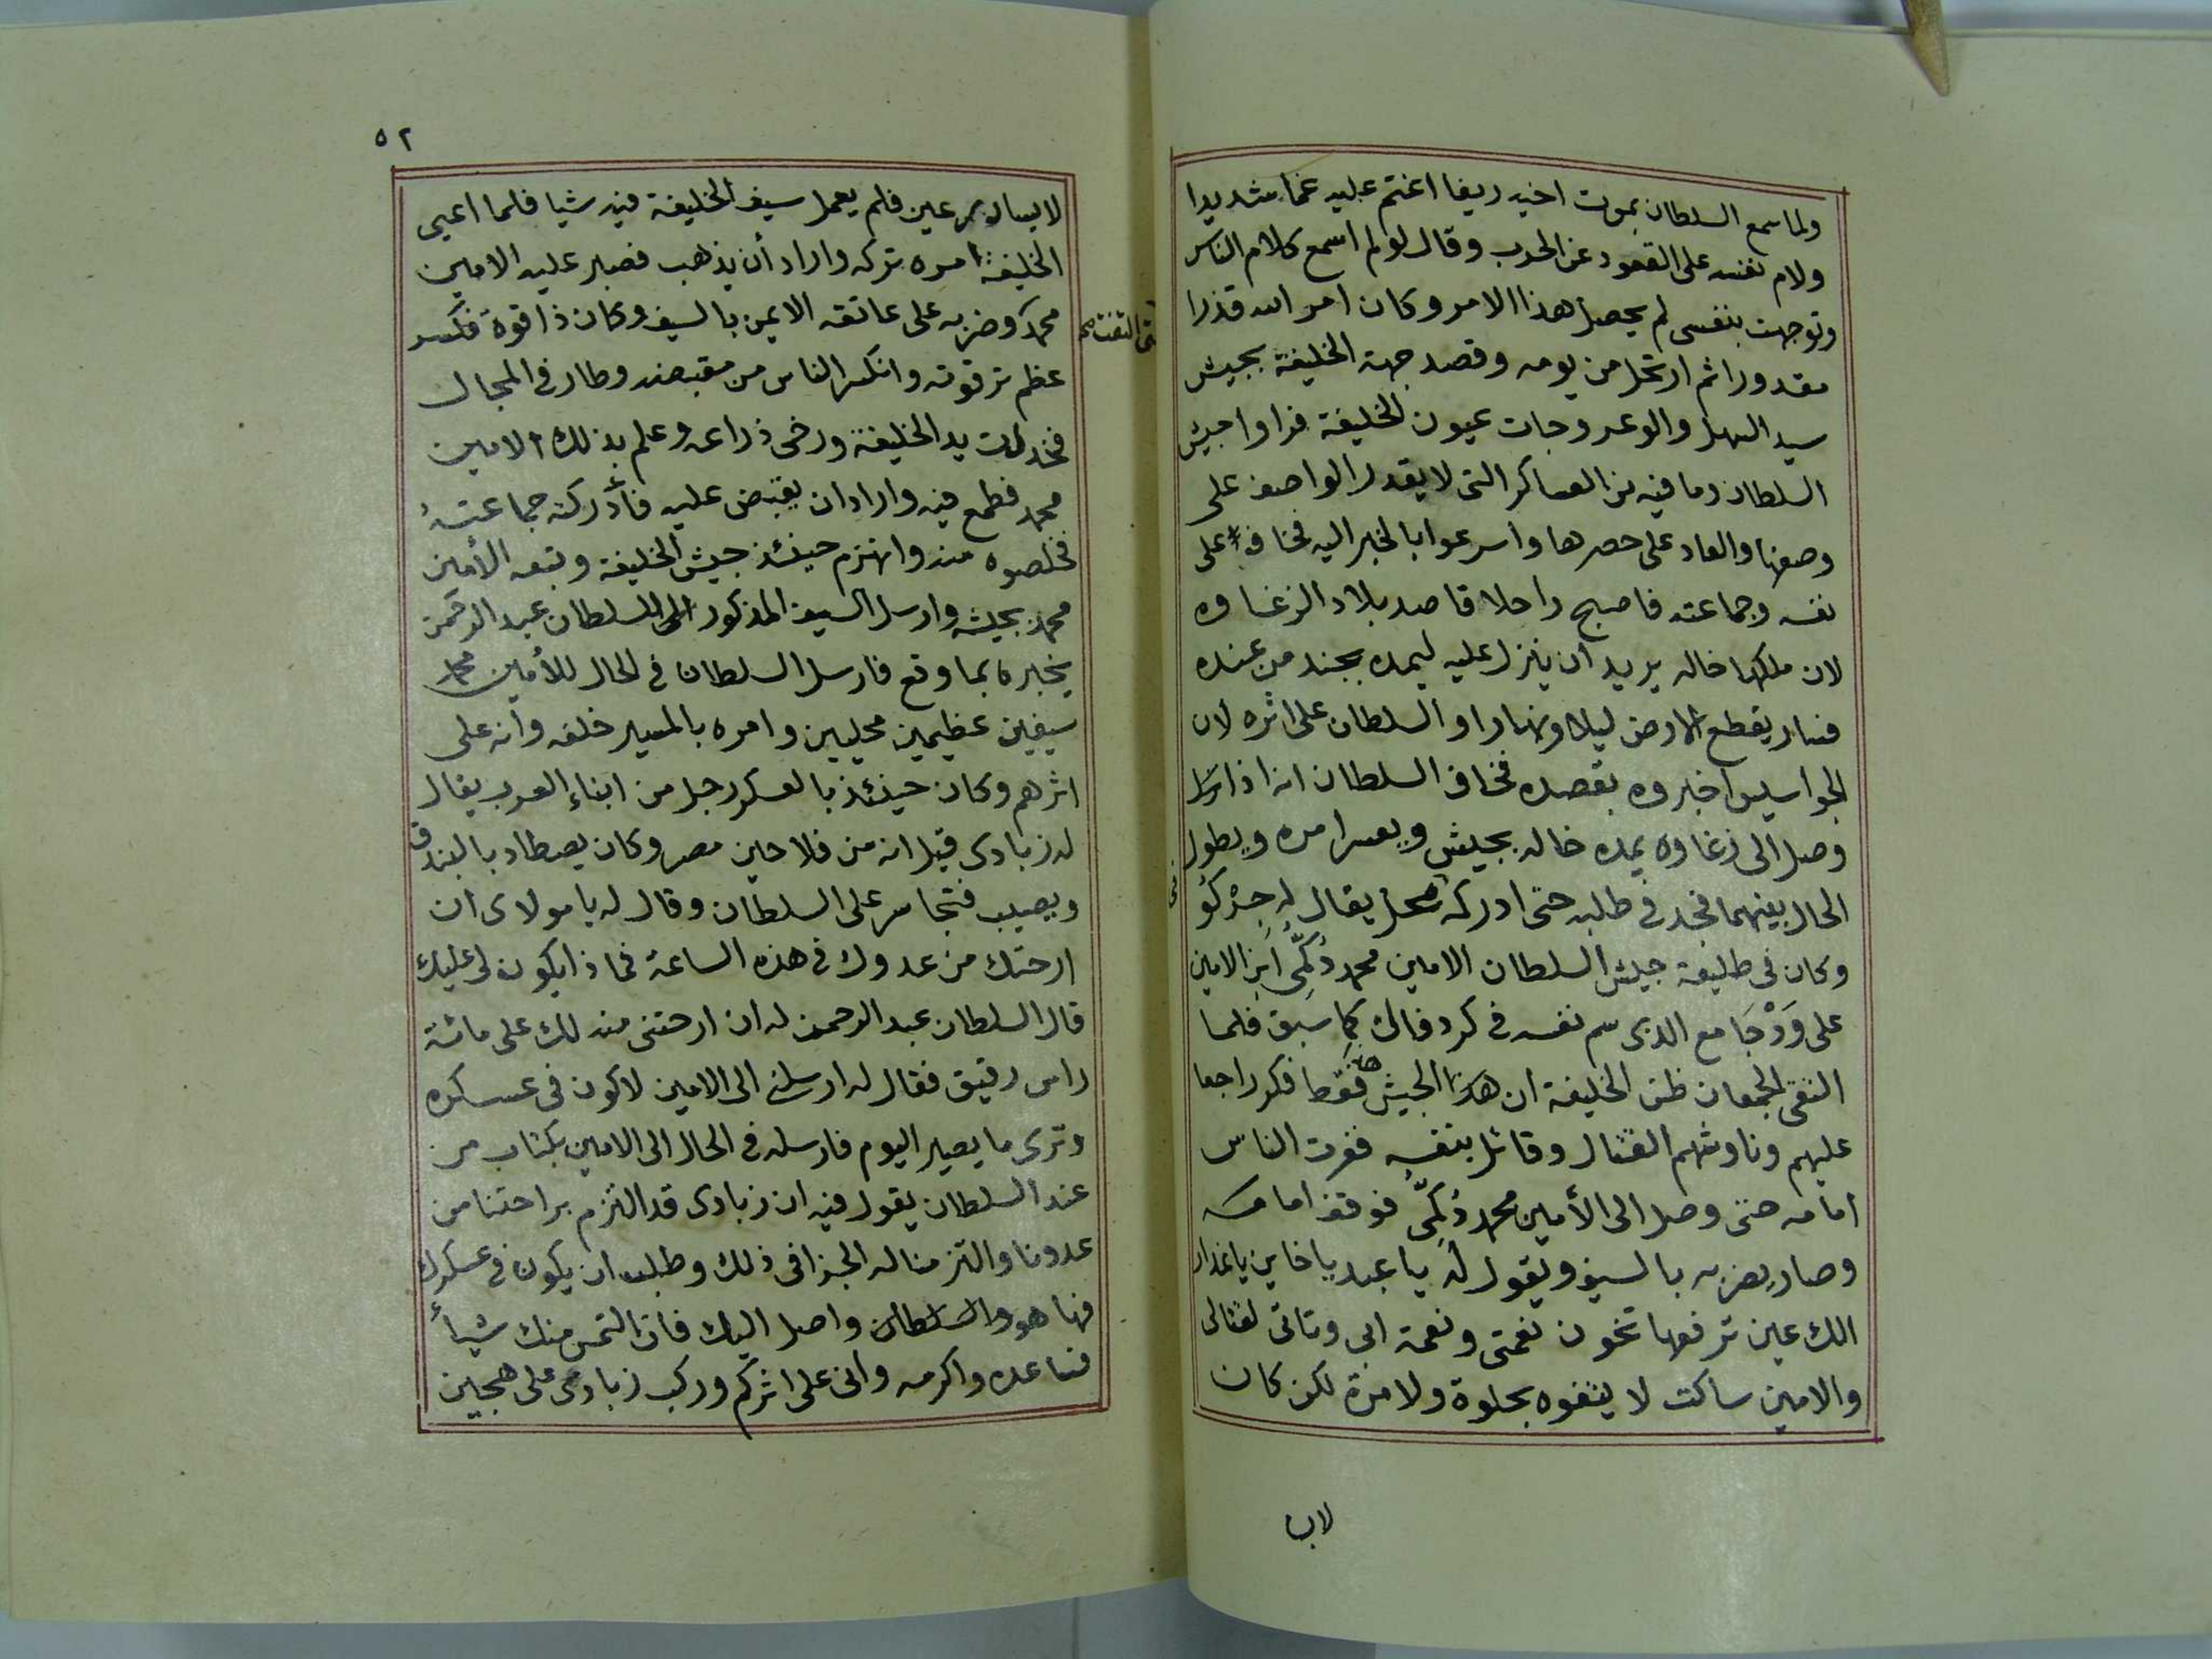 ولما سمع السلطان بموت اخيه ريفا اغتم عليه غما شديدا
ولام نفسه على القعود عن الحرب وقال لو لم اسمع كلام الناس
وتوجهت بنفسى لم يحصل هذا الامر وكان امر الله قدرا
مقدورا ثم ارتحل من يومه وقصد جهة الخليفة بجيش
سيد السهل والوعر وجات عيون الخليفة فراوا جيش
السلطان وما فيه من العساكر التى لا يقدر الواصف على
وصفها والعاد على حصرها واسرعوا بالخبر اليه فخاف على
نفسه وجماعته فاصبح راحلا قاصد بلاد الزغاوه
لان ملكها خاله يريد ان ينزل عليه ليمده بجند من عنده
فسار يقطع الارض ليلا ونهارا والسلطان على اثره لان
الجواسيس اخبروه بقصده فخاف السلطان انه اذا
وصل الى زغاوه يمده خاله بجيش ويعسر امره ويطول
الحال بينهما فجد فى طلبه حتى ادركه بمحل يقال له جِرْكُو
وكان فى طليعة جيش السلطان الامين محمد دُكُمِّى ابن الامين
على وَدْ جَامع الذى سم نفسه فى كردفال كما سبق فلما
التقى الجمعان ظن الخليفة ان هذا الجيش فقط فكر راجعا
عليهم وناوشهم القتال وقاتل بنفسه ففرت الناس
امامه حتى وصل الى الأمين محمد دُكُمِّى فوقف امامه
وصار يضربه بالسيف ويقول له يا عبد يا خاين يا غدار
الك عين ترفعها تخون نعمتى ونعمة ابى وتاتى لقتالى
والامين ساكت لا يتفوه بحلوة ولا مرة لكن كان
لاب
٥٢
لابسا درعين فلم يعمل سيف الخليفة فيه شيا فلما اعيى
الخليفة امره تركه واراد أن يذهب فصبر عليه الامين
محمد وضربه على عاتقه الايمن بالسيف وكان ذا قوة فكسر
عظم ترقوته وانكسر الناس من مقبضه وطار فى المجال
فخدلت يد الخليفة ورخى ذراعه وعلم بذلك الامين
محمد فطمع فيه واراد ان يقبض عليه فأدركته جماعتهُ
فخلصوه منه وانهزم حينئذ جيش الخليفة وتبعه الأمين
محمد بجيشه وارسل السيف المذكور الى السلطان عبد الرحمن
يخبره بما وقع فارسل السلطان فى الحال للأمين محمد
سيفين عظيمين محليين وامره بالمسير خلفه وأنه على
اثرهم وكان حينئذ بالعسكر رجل من ابناء العرب يقال
له زبادى قيل انه من فلاحين مصر وكان يصطاد بالبندق
ويصيب فتجاسر على السلطان وقال له يا مولاى ان
ارحتك من عدوك فى هذه الساعة فماذا يكون لى عليك
قال السلطان عبد الرحمن له ان ارحتنى منه لك على مائة
راس رقيق فقال له ارسلنى الى الامين لاكون فى عسكره
وترى ما يصير اليوم فارسله فى الحال الى الامين بكتاب من
عند السلطان يقول فيه ان زبادى قد التزم براحتنا من
عدونا والتزمنا له الجزا فى ذلك وطلب ان يكون فى عسكرك
فها هو والسلطان واصل اليك فان التمس منك شيأ
فساعده واكرمه وانى على اثركم وركب زبادى على هجين